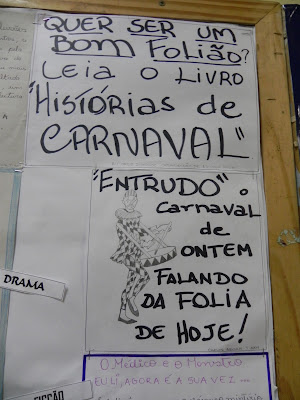 QUER SER UM
BOM FOLIÃO?
LEIA O LIVRO
"HISTÓRIAS DE
CARNAVAL"
"ENTRUDO" o
Carnaval
de
ONTEM
FALANDO
DA FOLIA
DE HOJE!
DRAMA
O Médico e o Monstro
EU LI, AGORA É A SUA VEZ...
FICÇÃO